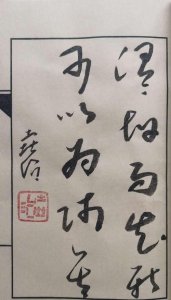 温故而知新
可以为师矣